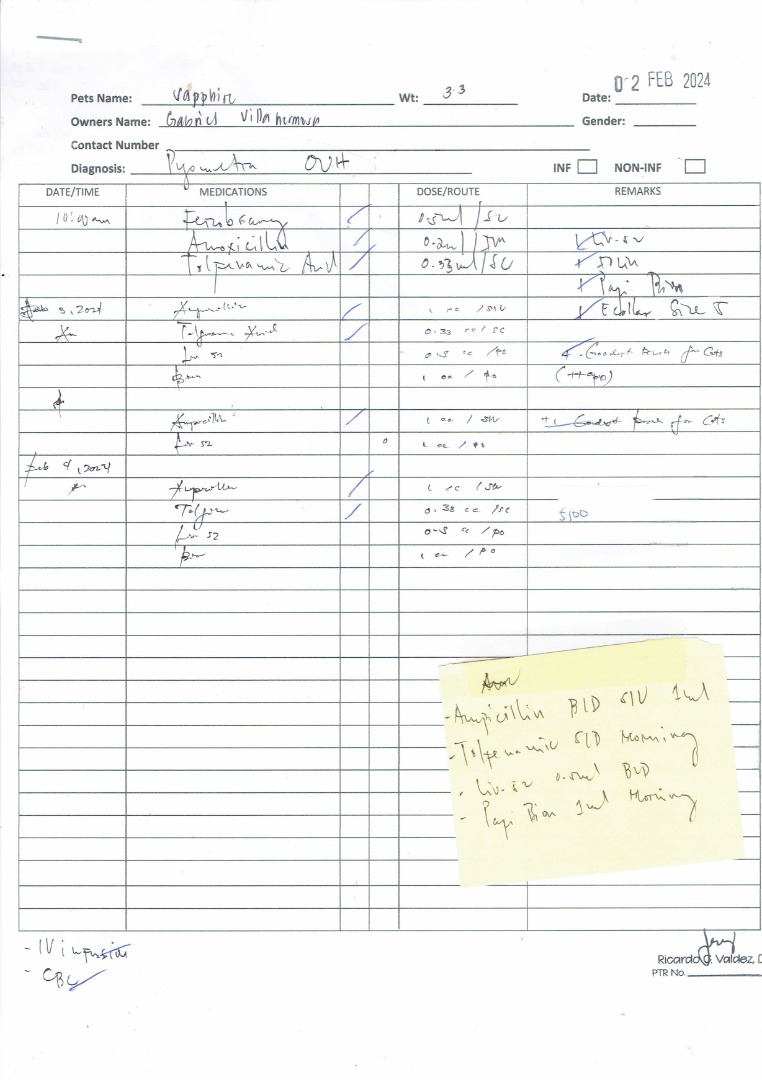 02 FEB 2024
Pets Name: Sapphire Wt: 3.3 Date:
Owners Name: Gabriel Villahermosa Gender:
Contact Number
Diagnosis: Pyometra OVH INF NON-INF
DATE/TIME MEDICATIONS DOSE/ROUTE REMARKS
10:00am 0.5ml/SC
Amoxicillin 0.2ml/IM Liv-52
Tolfenamic Acid 0.33ml/SC
Papi Bion
Feb 3, 2024 Ampicillin 1 cc /SIV Ecollar Size 5
Tolfenamic Acid 0.33 cc/sc
Liv 52 0.5 cc /po for Cats
Bion 1 cc / po
Ampicillin 1 cc / SIV +1 for Cats
Liv 52 1 cc / po
Feb 4, 2024
Ampicillin 1 cc /SIV
0.33 cc /sc 5100
Liv 52 0.5 cc /po
Bion 1 cc / po
-Ampicillin BID SIV 1ml
-Tolfenamic SID Morning
- Liv-52 0.5ml BID
- Papi Bion 1ml Morning
- IV infusion
- CBC
Ricardo G. Valdez, D
PTR No.